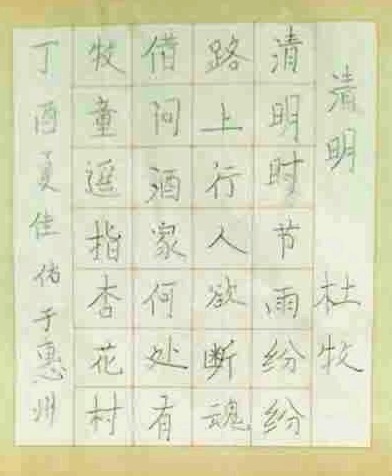 清明 杜牧
清明时节雨纷纷
路上行人欲断魂
借问酒家何处有
牧童遥指杏花村
丁酉夏佳佑于惠州